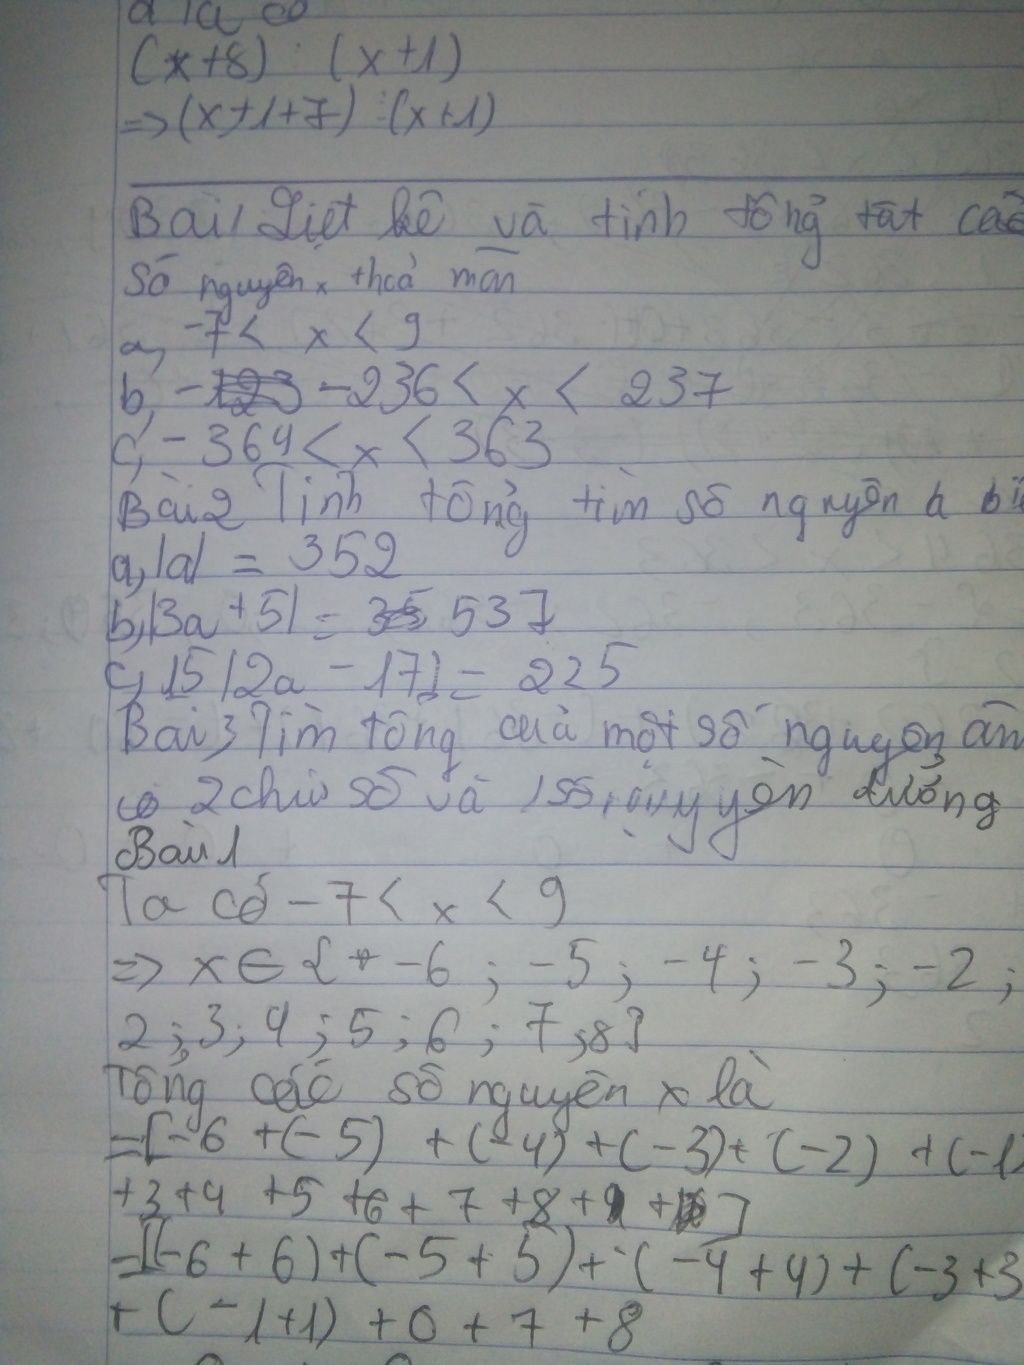 (x+8) ⋮ (x+1)
=> (x+1+7) ⋮ (x+1)
Bài 1 Liệt kê và tính tổng tất cả
số nguyên x thoả mãn
a, -7 < x < 9
b, -236 < x < 237
c, -364 < x < 363
Bài 2 Tính tổng tìm số nguyên a
a, |a| = 352
b, |3a + 5| = 537
c, 15 |2a - 17| = 225
Bài 3 Tìm tổng của một số nguyên âm
có 2 chữ số và 1 số nguyên dương
Bài 1
Ta có -7 < x < 9
=> x ∈ { -6 ; -5 ; -4 ; -3 ; -2 ;
2 ; 3 ; 4 ; 5 ; 6 ; 7 ; 8 }
Tổng các số nguyên x là
= [-6 + (-5) + (-4) + (-3) + (-2) + (-1)
+3 +4 +5 +6 + 7 +8 + ]
= [(-6 + 6) + (-5 + 5) + (-4 + 4) + (-3 + 3
+ ( -1+1) + 0 + 7 + 8